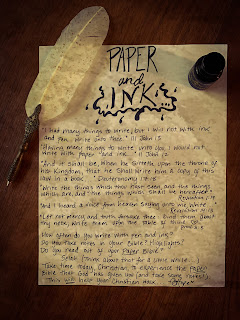 PAPER
and
INK
"I had many things to write, but I will not with ink
and pen write unto thee." III John 13
"Having many things to write unto you, I would not
write with paper and ink" II John 12
"And it shall be, when he sitteth upon the throne of
his Kingdom, that he shall write him a copy of this
law in a book" Deuteronomy 17:18
"Write the things which thou hast seen, and the things
which are, and the things which shall be hereafter"
Revelation 1:19
"And I heard a voice from heaven saying unto me, Write"
Revelation 14:13
"Let not mercy and truth forsake thee: bind them about
thy neck; write them upon the table of thine heart"
Proverbs 3:3
How often do you write with pen and ink?
Do you take notes in your Bible? Highlights?
Do you read out of your Paper Bible?
Selah (think about this for a little while)
Take time today, Christian, to experience the Paper
Bible that God has given you (and take some notes)
This will help your Christian walk.